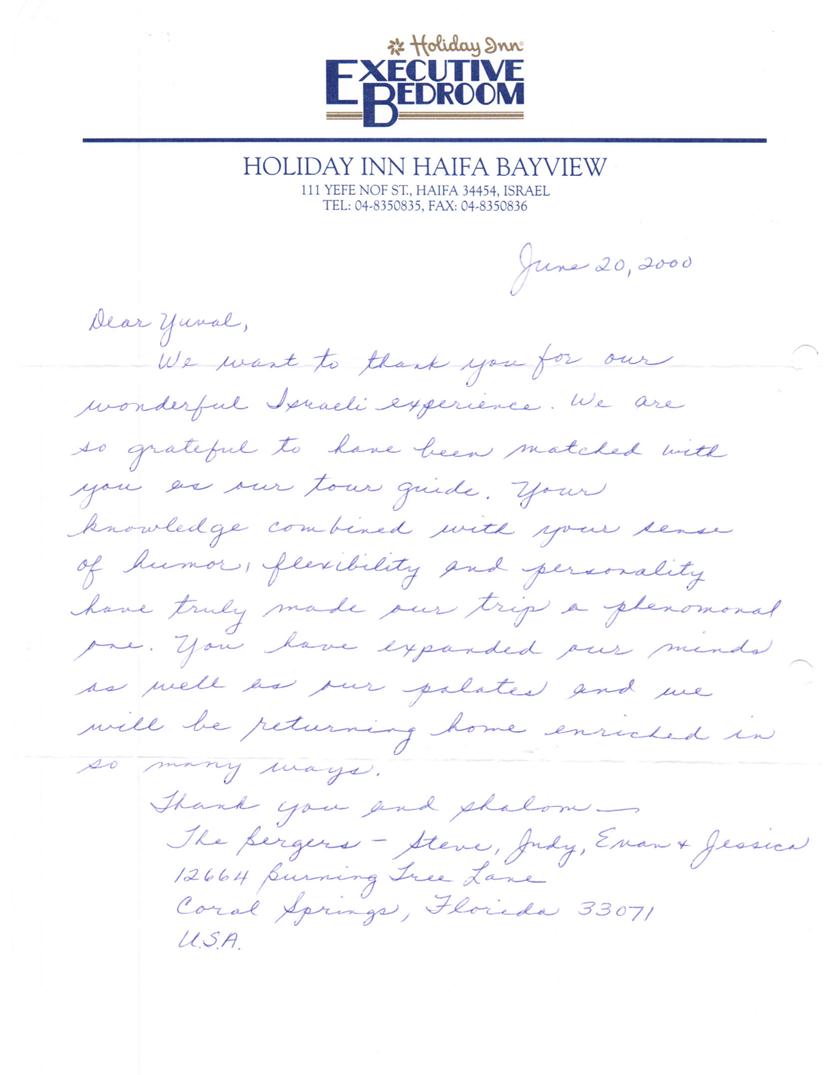 Holiday Inn®
EXECUTIVE
BEDROOM
HOLIDAY INN HAIFA BAYVIEW
111 YEFE NOF ST., HAIFA 34454, ISRAEL
TEL: 04-8350835, FAX: 04-8350836
June 20, 2000
Dear Yuval,
We want to thank you for our
wonderful Israeli experience. We are
so grateful to have been matched with
you as our tour guide. Your
knowledge combined with your sense
of humor, flexibility and personality
have truly made our trip a phenomonal
one. You have expanded our minds
as well as our palates and we
will be returning home enriched in
so many ways.
Thank you and shalom—
The Bergers - Steve, Judy, Evan + Jessica
12664 Burning Tree Lane
Coral Springs, Florida 33071
U.S.A.